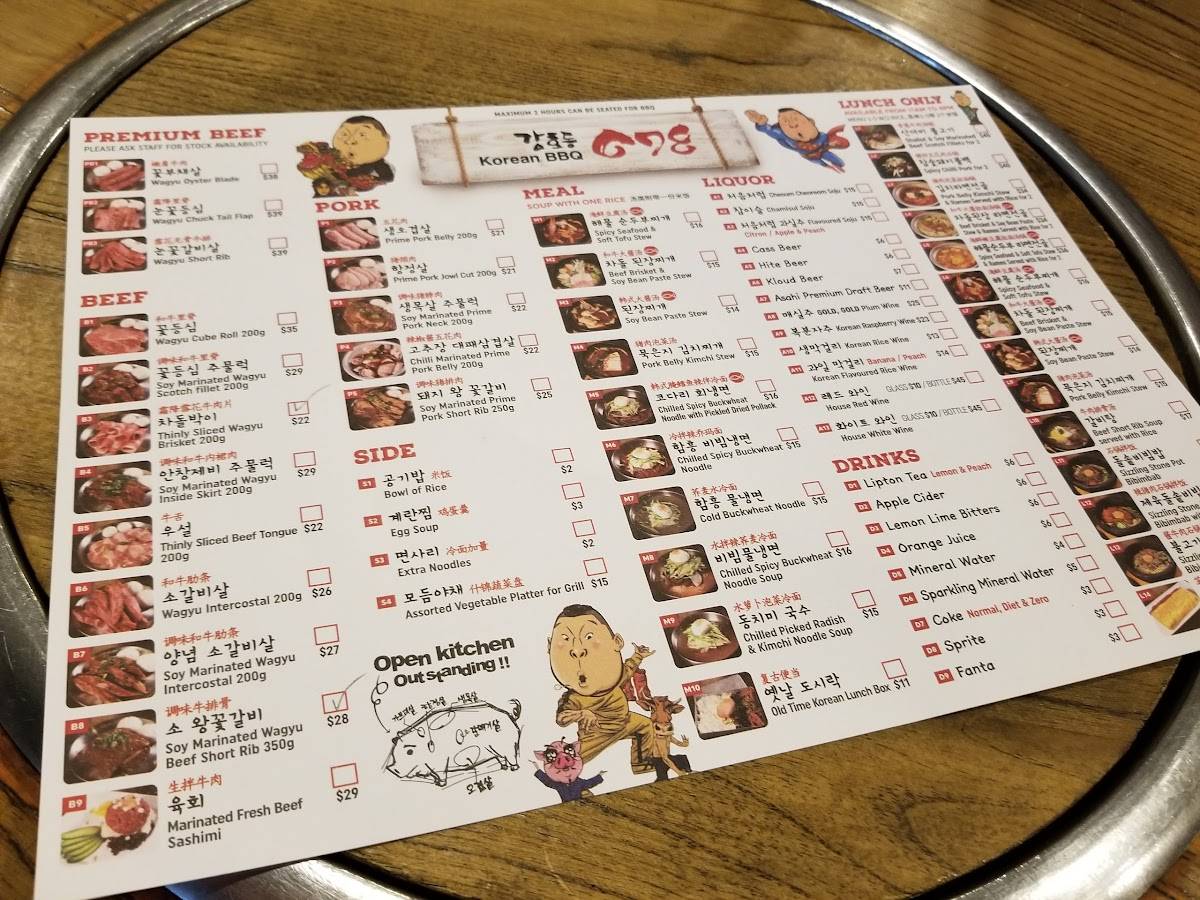 MAXIMUM 2 HOURS CAN BE SEATED FOR BBQ
강호동
Korean BBQ
678
PREMIUM BEEF
PLEASE ASK STAFF FOR STOCK AVAILABILITY
PB1
꽃부채살
Wagyu Oyster Blade
$38
PB2
눈꽃등심
Wagyu Chuck Tail Flap
$39
PB3
눈꽃갈비살
Wagyu Short Rib
$39
BEEF
B1
和牛里脊
꽃등심
Wagyu Cube Roll 200g
$35
B2
调味和牛里脊
꽃등심 주물럭
Soy Marinated Wagyu
Scotch fillet 200g
$29
B3
霜降雪花牛肉片
차돌박이
Thinly Sliced Wagyu
Brisket 200g
$22
B4
调味和牛内裙肉
안창제비 주물럭
Soy Marinated Wagyu
Inside Skirt 200g
$29
B5
牛舌
우설
Thinly Sliced Beef Tongue
200g
$22
B6
和牛肋条
소갈비살
Wagyu Intercostal 200g
$26
B7
调味和牛肋条
양념 소갈비살
Soy Marinated Wagyu
Intercostal 200g
$27
B8
调味牛排骨
소 왕꽃갈비
Soy Marinated Wagyu
Beef Short Rib 350g
$28
B9
生拌牛肉
육회
Marinated Fresh Beef
Sashimi
$29
PORK
P1
五花肉
생오겹살
Prime Pork Belly 200g
$21
P2
猪颈肉
항정살
Prime Pork Jowl Cut 200g
$21
P3
调味猪颈肉
생목살 주물럭
Soy Marinated Prime
Pork Neck 200g
$22
P4
辣椒酱五花肉
고추장 대패삼겹살
Chilli Marinated Prime
Pork Belly 200g
$22
P5
调味猪排肉
돼지 왕 꽃갈비
Soy Marinated Prime
Pork Short Rib 250g
$25
SIDE
S1 공기밥 米饭
Bowl of Rice
$2
S2 계란찜 鸡蛋羹
Egg Soup
$3
S3 면사리 冷面加量
Extra Noodles
$2
S4 모듬야채 什锦蔬菜盘
Assorted Vegetable Platter for Grill
$15
Open kitchen
Outstanding !!
MEAL
SOUP WITH ONE RICE 汤类附带一份米饭
M1
海鲜豆腐汤
해물 순두부찌개
Spicy Seafood &
Soft Tofu Stew
$16
M2
和牛大酱汤
차돌 된장찌개
Beef Brisket &
Soy Bean Paste Stew
$15
M3
韩式大酱汤
된장찌개
Soy Bean Paste Stew
$14
M4
猪肉泡菜汤
묵은지 김치찌개
Pork Belly Kimchi Stew
$15
M5
코다리 회냉면
Chilled Spicy Buckwheat
Noodle with Pickled Dried Pollack
$16
M6
冷拌辣乔玛面
함흥 비빔냉면
Chilled Spicy Buckwheat
Noodle
$15
M7
荞麦水冷面
함흥 물냉면
Cold Buckwheat Noodle
$15
M8
水拌辣荞麦冷面
비빔물냉면
Chilled Spicy Buckwheat
Noodle Soup
$16
M9
水萝卜泡菜冷面
동치미 국수
Chilled Picked Radish
& Kimchi Noodle Soup
$15
M10
复古便当
옛날 도시락
Old Time Korean Lunch Box
$11
LIQUOR
A1 처음처럼 Cheoum Cheoreom Soju $15
A2 참이슬 Chamisul Soju $15
처음처럼 과실주 Flavoured Soju $15
Citron / Apple & Peach
Cass Beer $6
A5 Hite Beer $6
A6 Kloud Beer $7
A7 Asahi Premium Draft Beer $11
A8 매실주 GOLD, GOLD Plum Wine $25
A9 복분자주 Korean Raspberry Wine $23
A10 생막걸리 Korean Rice Wine $13
A11 과일 막걸리 Banana / Peach $14
Korean Flavoured Rice Wine
A12 레드 와인 GLASS $10 / BOTTLE $45
House Red Wine
A13 화이트 와인 GLASS $10 / BOTTLE $45
House White Wine
DRINKS
D1 Lipton Tea Lemon & Peach $6
D2 Apple Cider $6
D3 Lemon Lime Bitters $6
D4 Orange Juice $6
D5 Mineral Water $4
D6 Sparkling Mineral Water $5
D7 Coke Normal, Diet & Zero $3
D8 Sprite $3
D9 Fanta $3
LUNCH ONLY
AVAILABLE FROM 11AM TO 4PM
산더미 불고기
Shallot & Soy Marinated
Beef Scotch Fillets For 2
Spicy Chilli Pork For 2
$40
김치라면전골
Pork Belly Kimchi Stew
& Ramen Served with Rice for 2
$34
차돌된장 라면전골
Beef Brisket & Soy Bean Paste Stew
& Ramen Served with Rice for 2
해물순두부 라면전골
Spicy Seafood & Soft Tofu Stew
& Ramen Served with Rice for 2
해물 순두부찌개
Spicy Seafood &
Soft Tofu Stew
$16
차돌 된장찌개
Beef Brisket &
Soy Bean Paste Stew
$15
韩式大酱汤
된장찌개
Soy Bean Paste Stew
$14
猪肉泡菜汤
묵은지 김치찌개
Pork Belly Kimchi Stew
$15
L10
牛肉排骨汤
갈비탕
Beef Short Rib Soup
served with Rice
$17
L11
石锅拌饭
돌솥비빔밥
Sizzling Stone Pot
Bibimbab
L12
제육돌솥비빔
Sizzling Stone
Bibimbab
L13
불고기
Sizzling
Bibimb
L14